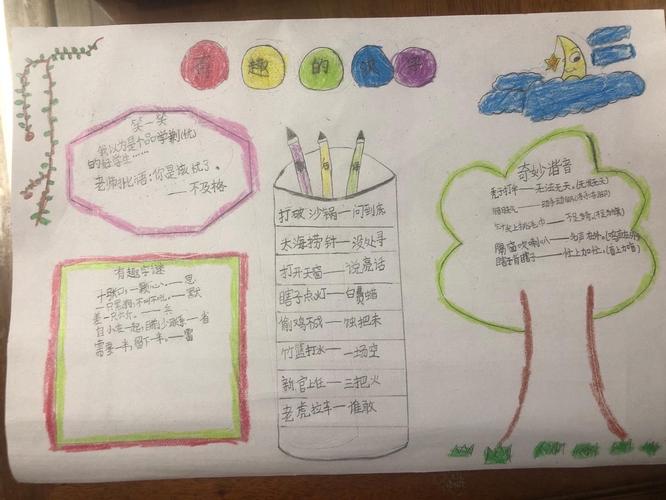 有趣的汉字
笑一笑
我以为是个品学兼(优)
的好学生……
老师批语：你是成忧了。
——不及格
有趣字谜
十张口，一颗心。——思
一只黑狗，不叫不吼。——默
差一只
自小在一起，目前少联系—省
需要一半，留下一半。——雷
歇后语
打破沙锅—问到底
大海捞针—没处寻
打开天窗—说亮话
瞎子点灯—白费蜡
偷鸡不成—蚀把米
竹篮打水—一场空
新官上任—三把火
老虎拉车—谁敢
奇妙谐音
秃子打伞——无法无天。(无发无天)
隔窗吹喇叭——名声在外。(鸣声在外)